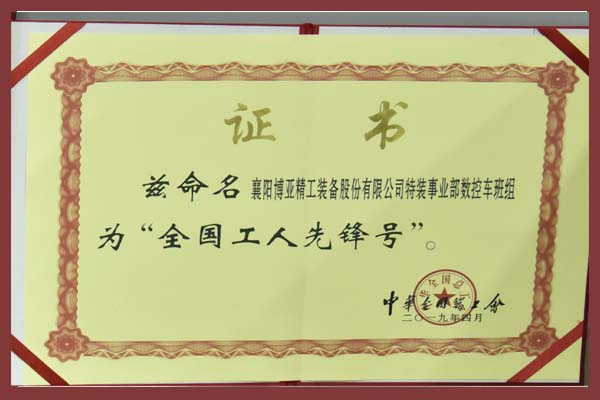 证书
兹命名 襄阳博亚精工装备股份有限公司特装事业部数控车班组
为“全国工人先锋号”。
中华全国总工会
二〇一九年四月